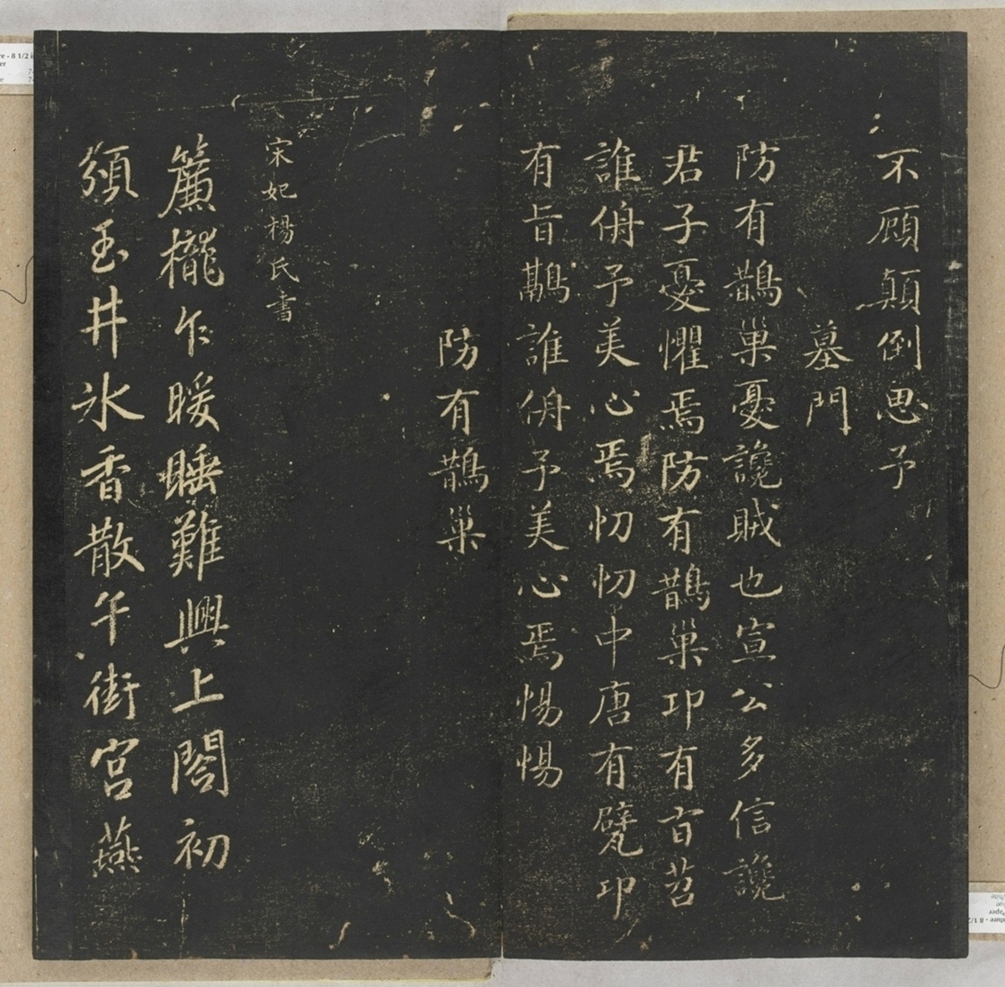 不顧顛倒思予
墓門
防有鵲巢憂讒賊也宣公多信讒
君子憂懼焉防有鵲巢卭有旨苕
誰侜予美心焉忉忉中唐有甓卭
有旨鷊誰侜予美心焉惕惕
防有鵲巢
宋妃楊氏書
簾櫳乍暖睡難興上閤初
頒玉井氷香散午街宫燕